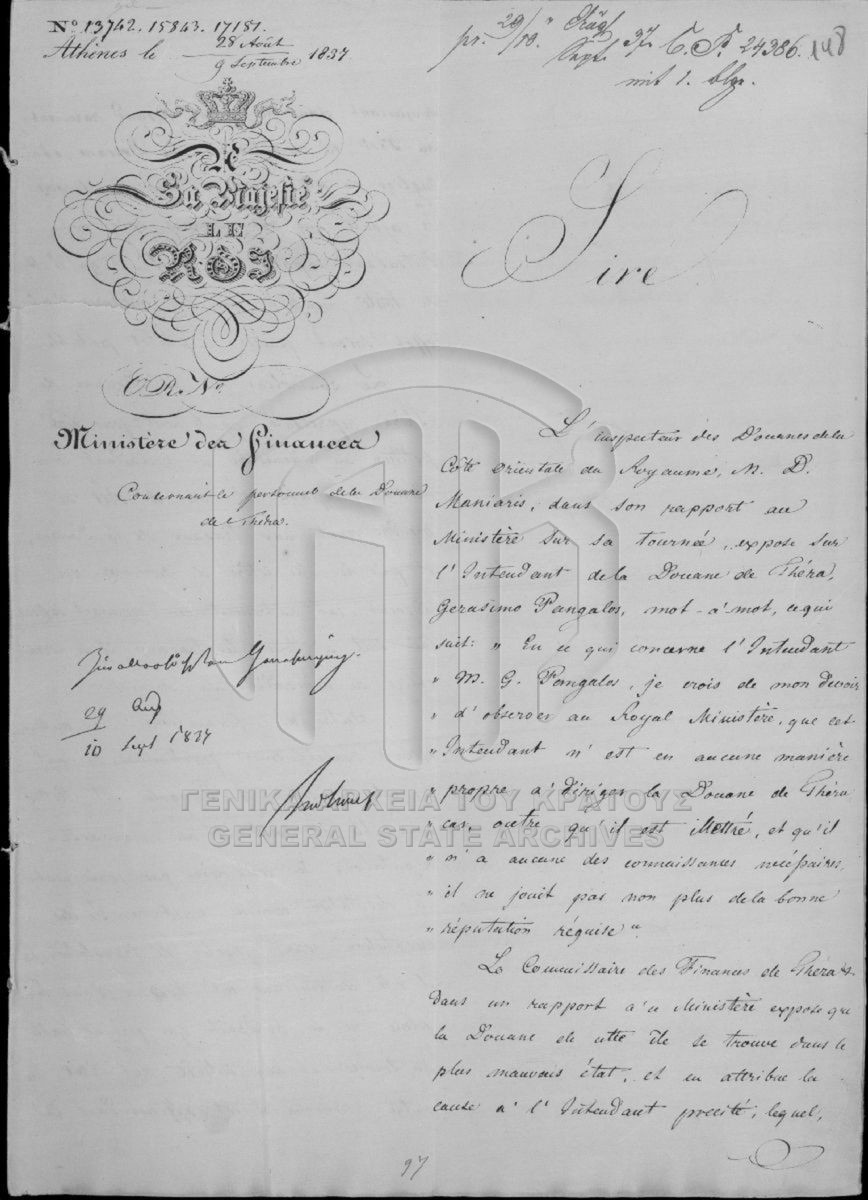 Nº 13742. 15843. 17181.
Athènes le 28 Août / 9 Septembre 1837
pr. 29/10. Aug/Sept 37 C. P. 24386. 148
mit 1. blge.
A
Sa Majesté
LE
ROI
Sire
C. R. Nº
Ministère des Finances
Concernant le personnel de la Douane
de Théra.
29 Aug
10 Sept 1837
L'inspecteur des Douanes de la
Côte orientale du Royaume, M. D.
Maniaris, dans son rapport au
Ministère sur sa tournée, expose sur
l'Intendant de la Douane de Théra,
Gerasimo Pangalos, mot-à-mot, ce qui
suit: " En ce qui concerne l'Intendant
" M. G. Pangalos, je crois de mon devoir
" d'observer au Royal Ministère, que cet
" Intendant n'est en aucune manière
" propre à diriger la Douane de Théra
" car, outre qu'il est illettré, et qu'il
" n'a aucune des connaissances nécessaires,
" il ne jouit pas non plus de la bonne
" réputation réquise "
Le Commissaire des Finances de Théra
dans un rapport à ce Ministère expose que
la Douane de cette île se trouve dans le
plus mauvais état, et en attribue la
cause à l'Intendant precité, lequel,
97
ΓΕΝΙΚΑ ΑΡΧΕΙΑ ΤΟΥ ΚΡΑΤΟΥΣ
GENERAL STATE ARCHIVES